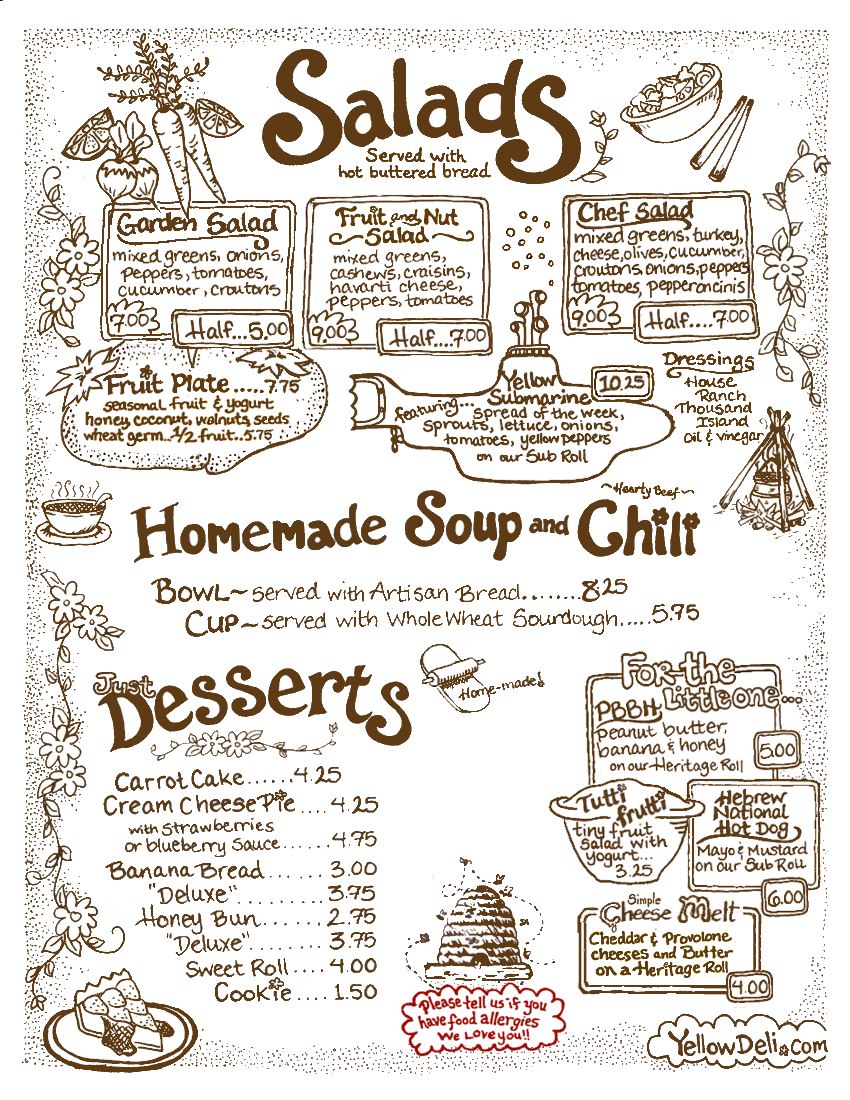 Salads
Served with
hot buttered bread
Garden Salad
mixed greens, onions,
peppers, tomatoes,
cucumber, croutons
7.00
Half...5.00
Fruit and Nut
Salad
mixed greens,
cashews, craisins,
havarti cheese,
peppers, tomatoes
9.00
Half...7.00
Chef Salad
mixed greens, turkey,
cheese, olives, cucumber,
croutons, onions, peppers
tomatoes, pepperoncinis
9.00
Half....7.00
Fruit Plate.....7.75
seasonal fruit & yogurt
honey, coconut, walnuts, seeds
wheat germ...1/2 fruit..5.75
Yellow
Submarine
10.25
featuring...
spread of the week,
sprouts, lettuce, onions,
tomatoes, yellow peppers
on our Sub Roll
Dressings
House
Ranch
Thousand
Island
Oil & vinegar
~Hearty Beef~
Homemade Soup and Chili
Bowl~ served with Artisan Bread.......8.25
Cup~served with Whole Wheat Sourdough.....5.75
Just
Desserts
Home-made!
Carrot Cake......4.25
Cream Cheese Pie....4.25
with strawberries
or blueberry sauce......4.75
Banana Bread......3.00
"Deluxe".........3.75
Honey Bun......2.75
"Deluxe"........3.75
Sweet Roll....4.00
Cookie....1.50
For the
Little one...
PBBH
peanut butter,
banana & honey
on our Heritage Roll
5.00
Tutti
frutti
tiny fruit
salad with
yogurt...
3.25
Hebrew
National
Hot Dog
Mayo & Mustard
on our Sub Roll
6.00
Simple
Cheese Melt
Cheddar & Provolone
cheeses and Butter
on a Heritage Roll
4.00
please tell us if you
have food allergies
We Love you!!
YellowDeli.com